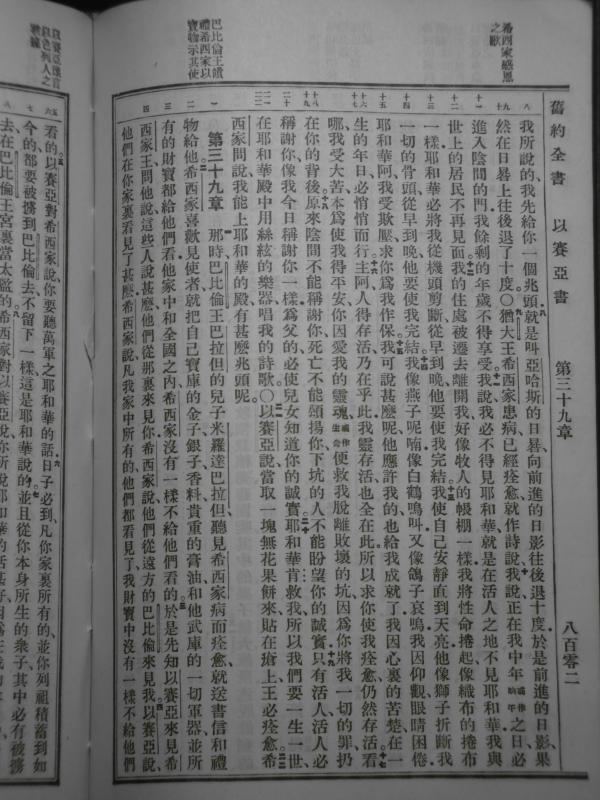 舊約全書　以賽亞書　第三十九章　八百零二
希西家感恩
之歌
我所說的我先給你一個兆頭就是叫亞哈斯的日晷向前進的日影往後退十度於是前進的日影果
然在日晷上往後退了十度〇猶大王希西家患病已經痊愈就作詩說我說正在我中年之日必
進入陰間的門我餘剩的年歲不得享受我說我必不得見耶和華就是在活人之地不見耶和華我與
世上的居民不再見面我的住處被遷去離開我好像牧人的帳棚一樣我將性命捲起像織布的捲布
一樣耶和華必將我從機頭剪斷從早到晚他要使我完結我使自己安靜直到天亮他像獅子折斷我
一切的骨頭從早到晚他要使我完結我像燕子呢喃像白鶴鳴叫又像鴿子哀鳴我因仰觀眼睛困倦
耶和華阿我受欺壓求你為我作保我可說甚麼呢他應許我的也給我成就了我因心裏的苦楚在一
生的年日必悄悄而行主阿人得存活乃在乎此我靈存活也全在此所以求你使我痊愈仍然存活看
哪我受大苦本為使我得平安你因愛我的靈魂便救我脫離敗壞的坑因為你將我一切的罪扔
在你的背後原來陰間不能稱謝你死亡不能頌揚你下坑的人不能盼望你的誠實只有活人活人必
稱謝你像我今日稱謝你一樣為父的必使兒女知道你的誠實耶和華肯救我所以我們要一生一世
在耶和華殿中用絲絃的樂器唱我的詩歌〇以賽亞說當取一塊無花果餅來貼在瘡上王必痊愈希
西家問說我能上耶和華的殿有甚麼兆頭呢
巴比倫王餽
禮希西家以
寶物示其使
第三十九章　那時巴比倫王巴拉但的兒子米羅達巴拉但聽見希西家病而痊愈就送書信和禮
物給他希西家喜歡見使者就把自己寶庫的金子銀子香料貴重的膏油和他武庫的一切軍器並所
有的財寶都給他們看他家中和全國之內希西家沒有一樣不給他們看的於是先知以賽亞來見希
西家王問他說這些人說甚麼他們從那裏來見你希西家說他們從遠方的巴比倫來見我以賽亞說
他們在你家裏看見了甚麼希西家說凡我家中所有的他們都看見了我財寶中沒有一樣不給他們
看的以賽亞對希西家說你要聽萬軍之耶和華的話日子必到凡你家裏所有的並你列祖積蓄到如
今的都要被擄到巴比倫去不留下一樣這是耶和華說的並且從你本身所生的眾子其中必有被擄
去在巴比倫王宮裏當太監的希西家對以賽亞說你所說耶和華的話甚好因為在我